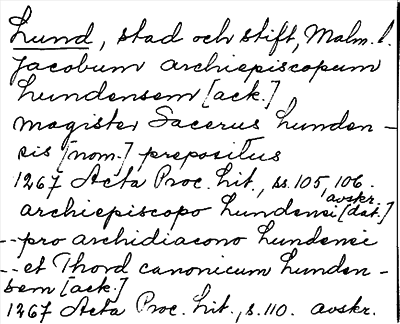 Lund, stad och stift, Malm. l.
Jacobum archiepiscopum
lundensem [ack.]
magister Sacerus lunden-
sis [nom.] prepositus
1267 Acta Proc. lit., ss. 105, 106.
avskr.
archiepiscopo lundensi [dat.]
-- pro archidiacono lundensi
-- et Thord canonicum lunden-
sem [ack.]
1267 Acta Proc. lit., s. 110. avskr.